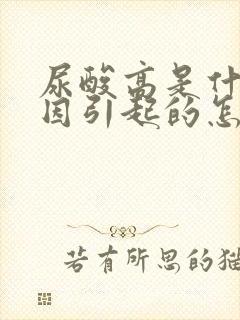 尿酸高是什
因引起的怎
若有所思的猫